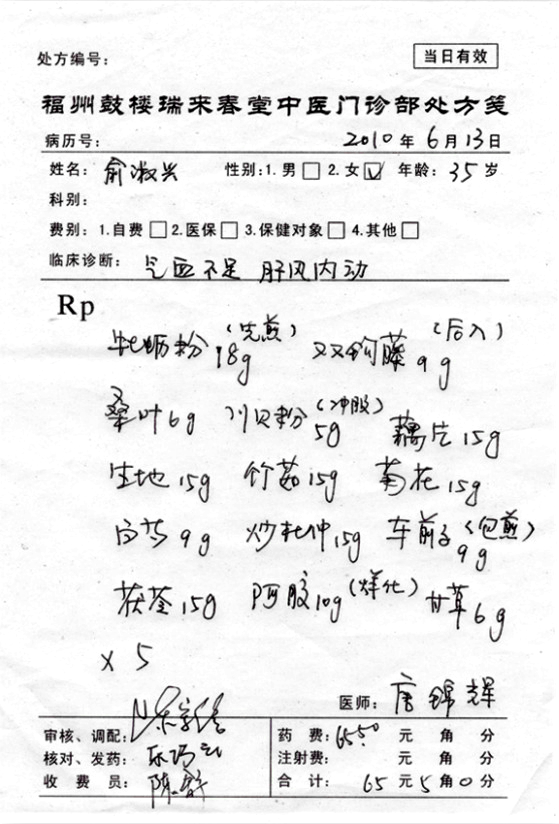 处方编号:
当日有效
福州鼓楼瑞来春堂中医门诊部处方笺
病历号: 2010年6月13日
姓名: 俞淑兴 性别:1.男□ 2.女☑ 年龄: 35岁
科别:
费别: 1.自费□ 2.医保□ 3.保健对象□ 4.其他□
临床诊断: 气血不足 肝风内动
Rp
牡蛎粉18g(先煎) 双钩藤9g(后入)
桑叶6g 川贝粉5g(冲服) 藕片15g
生地15g 竹茹15g 菊花15g
白芍9g 炒杜仲15g 车前子9g(包煎)
茯苓15g 阿胶10g(烊化) 甘草6g
x 5
医师: 唐锦辉
审核、调配: 药费: 65.50 元 角 分
核对、发药: 注射费: 元 角 分
收费员: 陈 合计: 65元5角0分